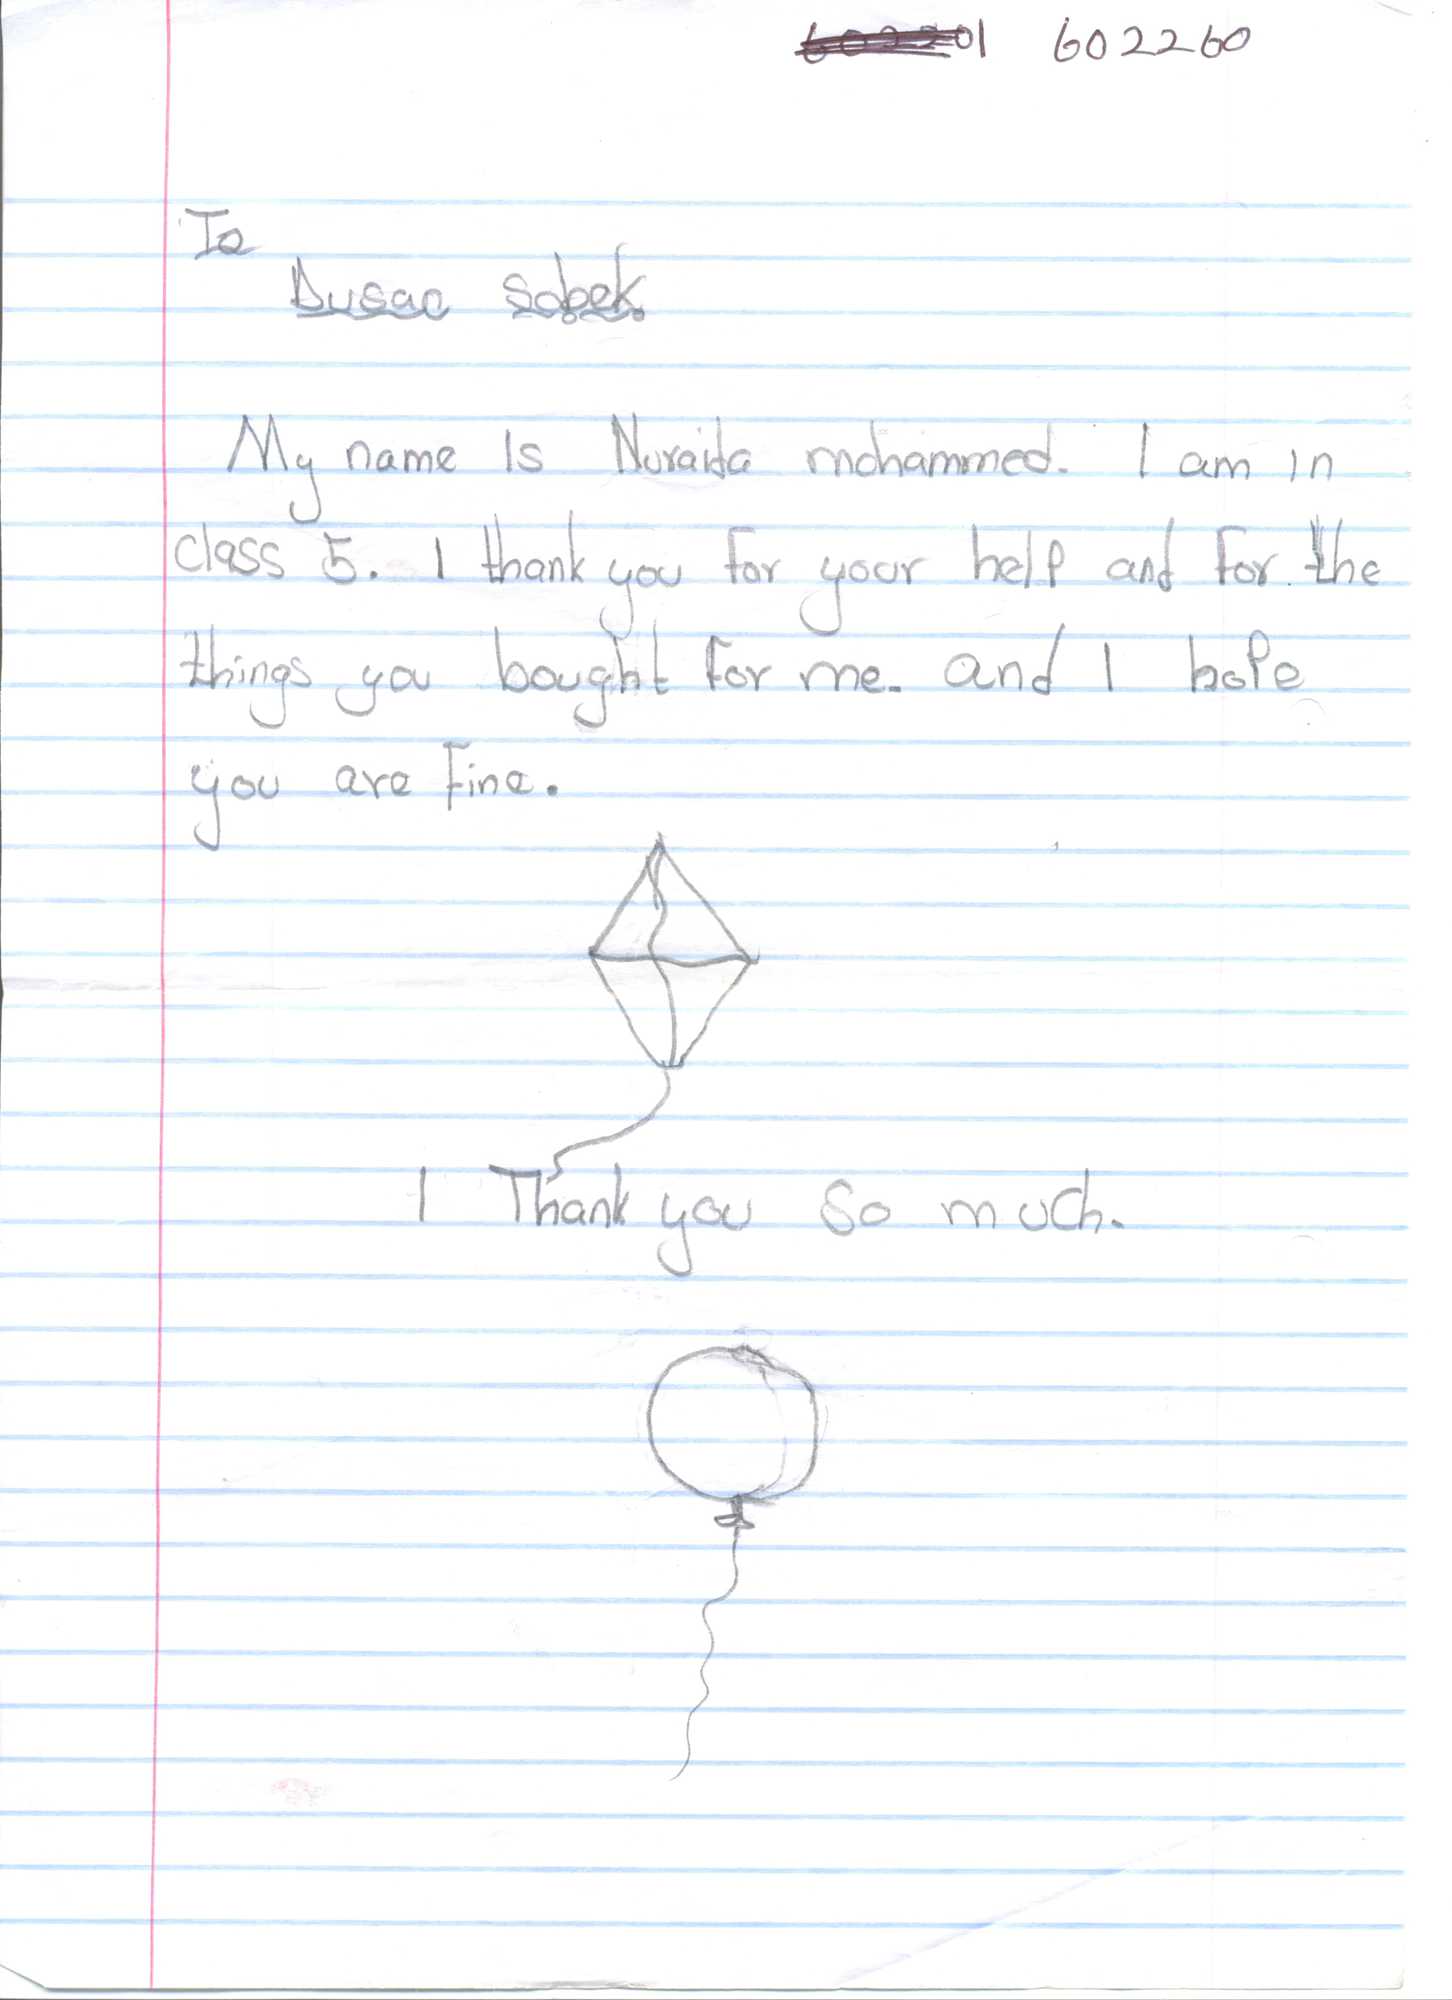 602201 602260
To
Dusan Sobek.
My name Is Nuraida mohammed. I am in
class 5. I thank you for your help and for the
things you bought for me. and I hope
you are Fine.
I Thank you so much.